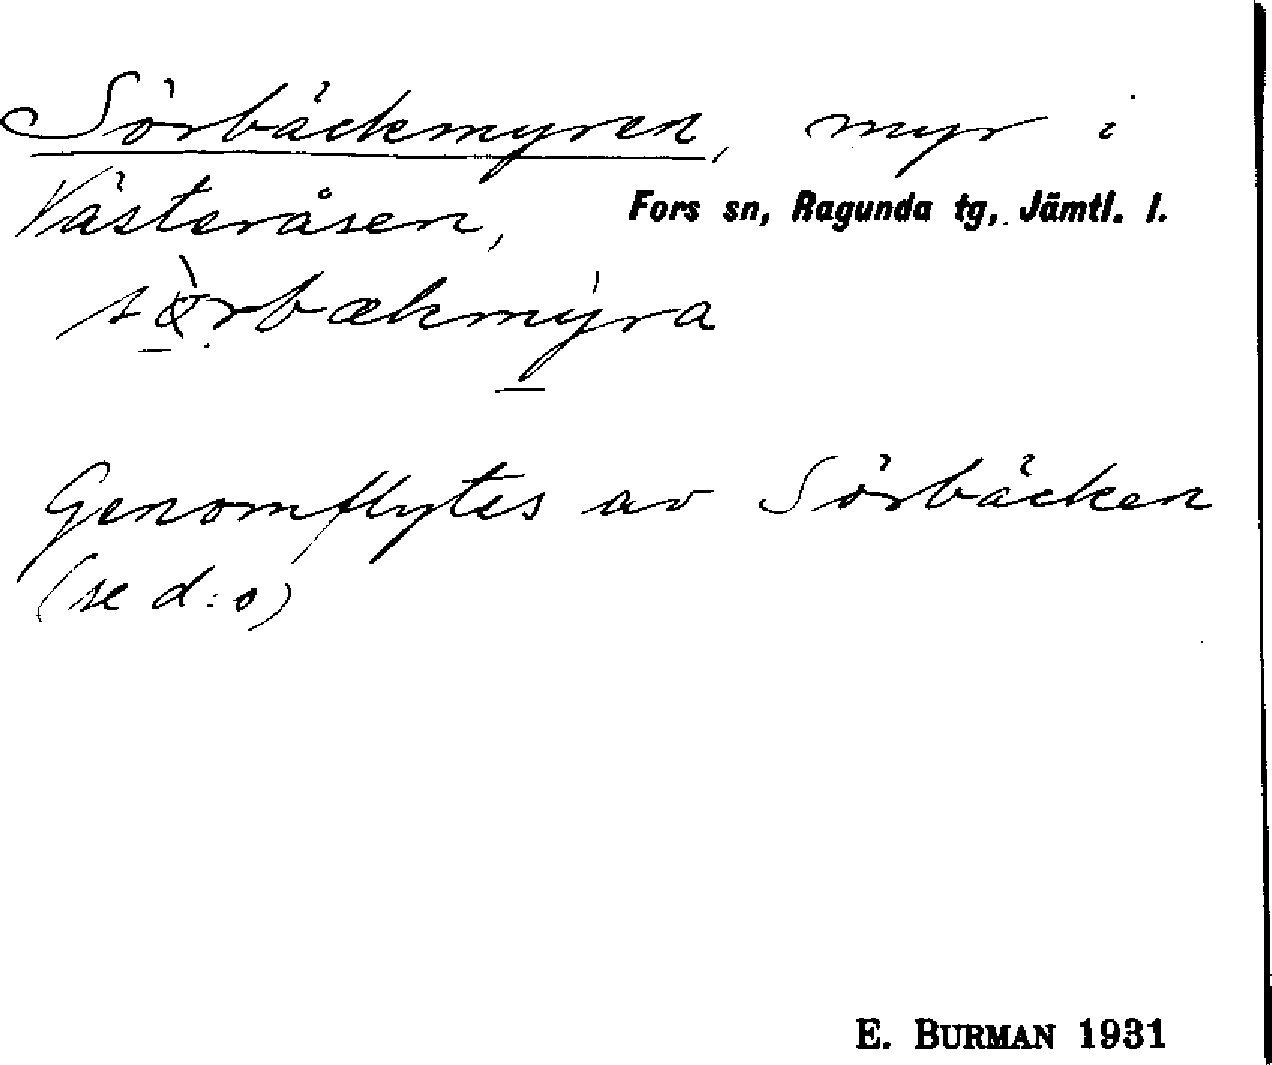 Sörbäckmyren, myr i
Västeråsen, Fors sn, Ragunda tg, Jämtl. l.
Genomflytes av Sörbäcken
(se d:o)
E. BURMAN 1931